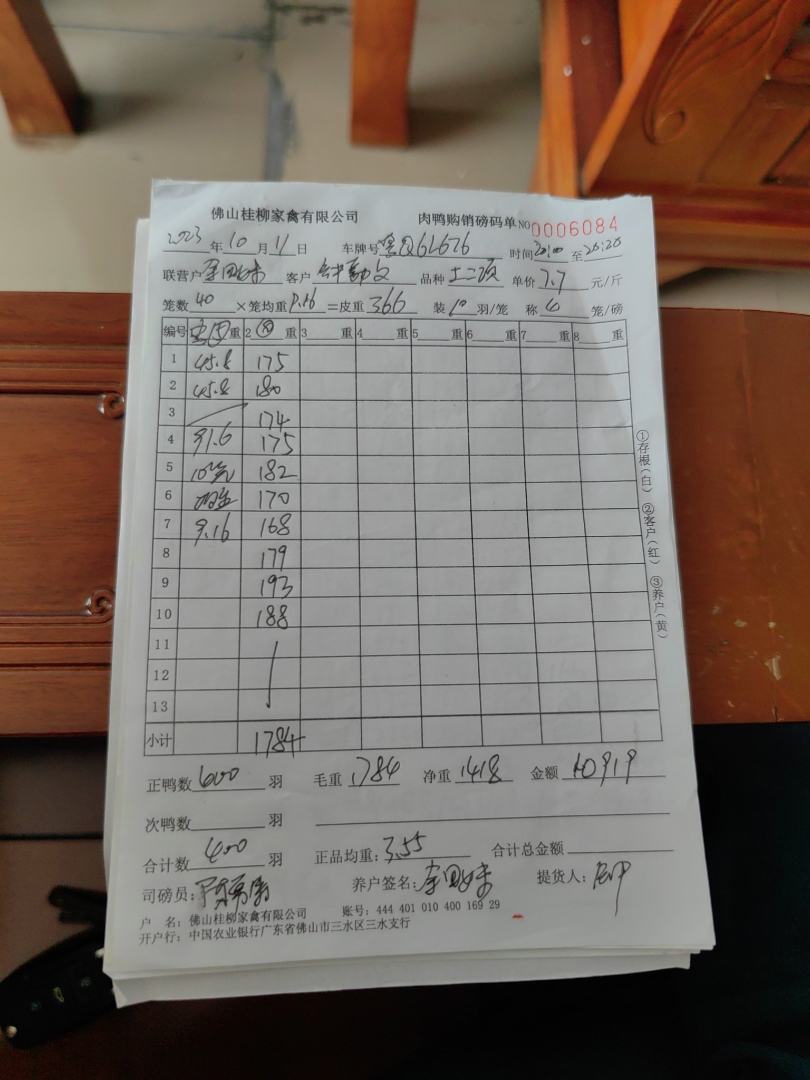 佛山桂柳家禽有限公司 肉鸭购销磅码单 NO 0006084
2023年10月11日 车牌号 粤Q6L676 时间 20:00 至 20:20
联营户 李田妹 客户 品种 土二 单价 7.7 元/斤
笼数 40 ×笼均重 9.16 =皮重 366 装 10 羽/笼 称 4 笼/磅
编号 重 2 重 3 重 4 重 5 重 6 重 7 重 8 重
1 45.8 175
2 45.8 180
3 174
4 91.6 175
5 10笼 182
6 170
7 9.16 168
8 179
9 193
10 188
11
12
13
小计 1784
正鸭数 400 羽 毛重 1784 净重 1418 金额 10919
次鸭数 羽
合计数 400 羽 正品均重: 3.55 合计总金额
司磅员: 养户签名: 李田妹 提货人:
户 名: 佛山桂柳家禽有限公司 账号: 444 401 010 400 169 29
开户行: 中国农业银行广东省佛山市三水区三水支行
①存根(白) ②客户(红) ③养户(黄)